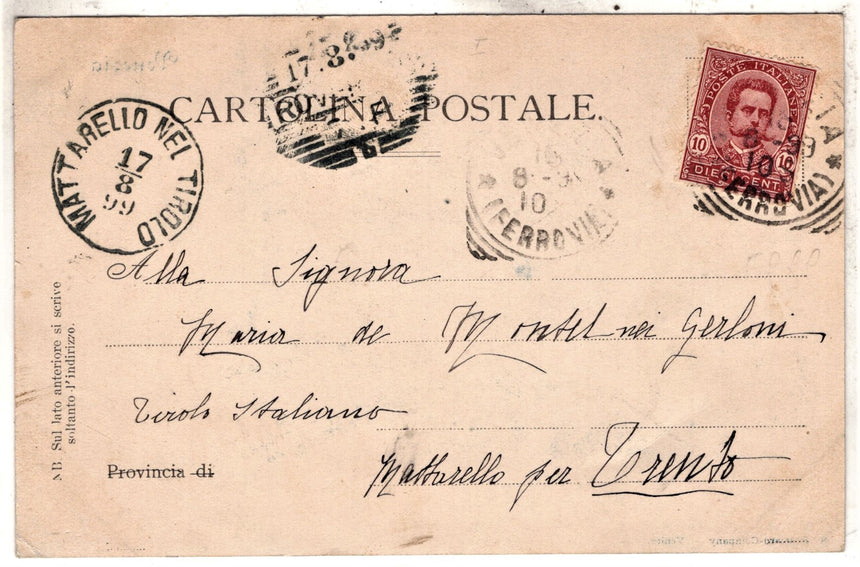 17.8.99
POSTE ITALIANE
10 10
DIECI CENT.
8-99
10
(FERROVIA)
CARTOLINA POSTALE.
MATTARELLO NEL TIROLO
17
8
99
16
8-9
10
(FERROVIA)
Alla Signora
Maria de Montel nei Gerloni
Tirolo Italiano
Mattarello per Trento
Provincia di
NB. Sul lato anteriore si scrive
soltanto l'indirizzo.